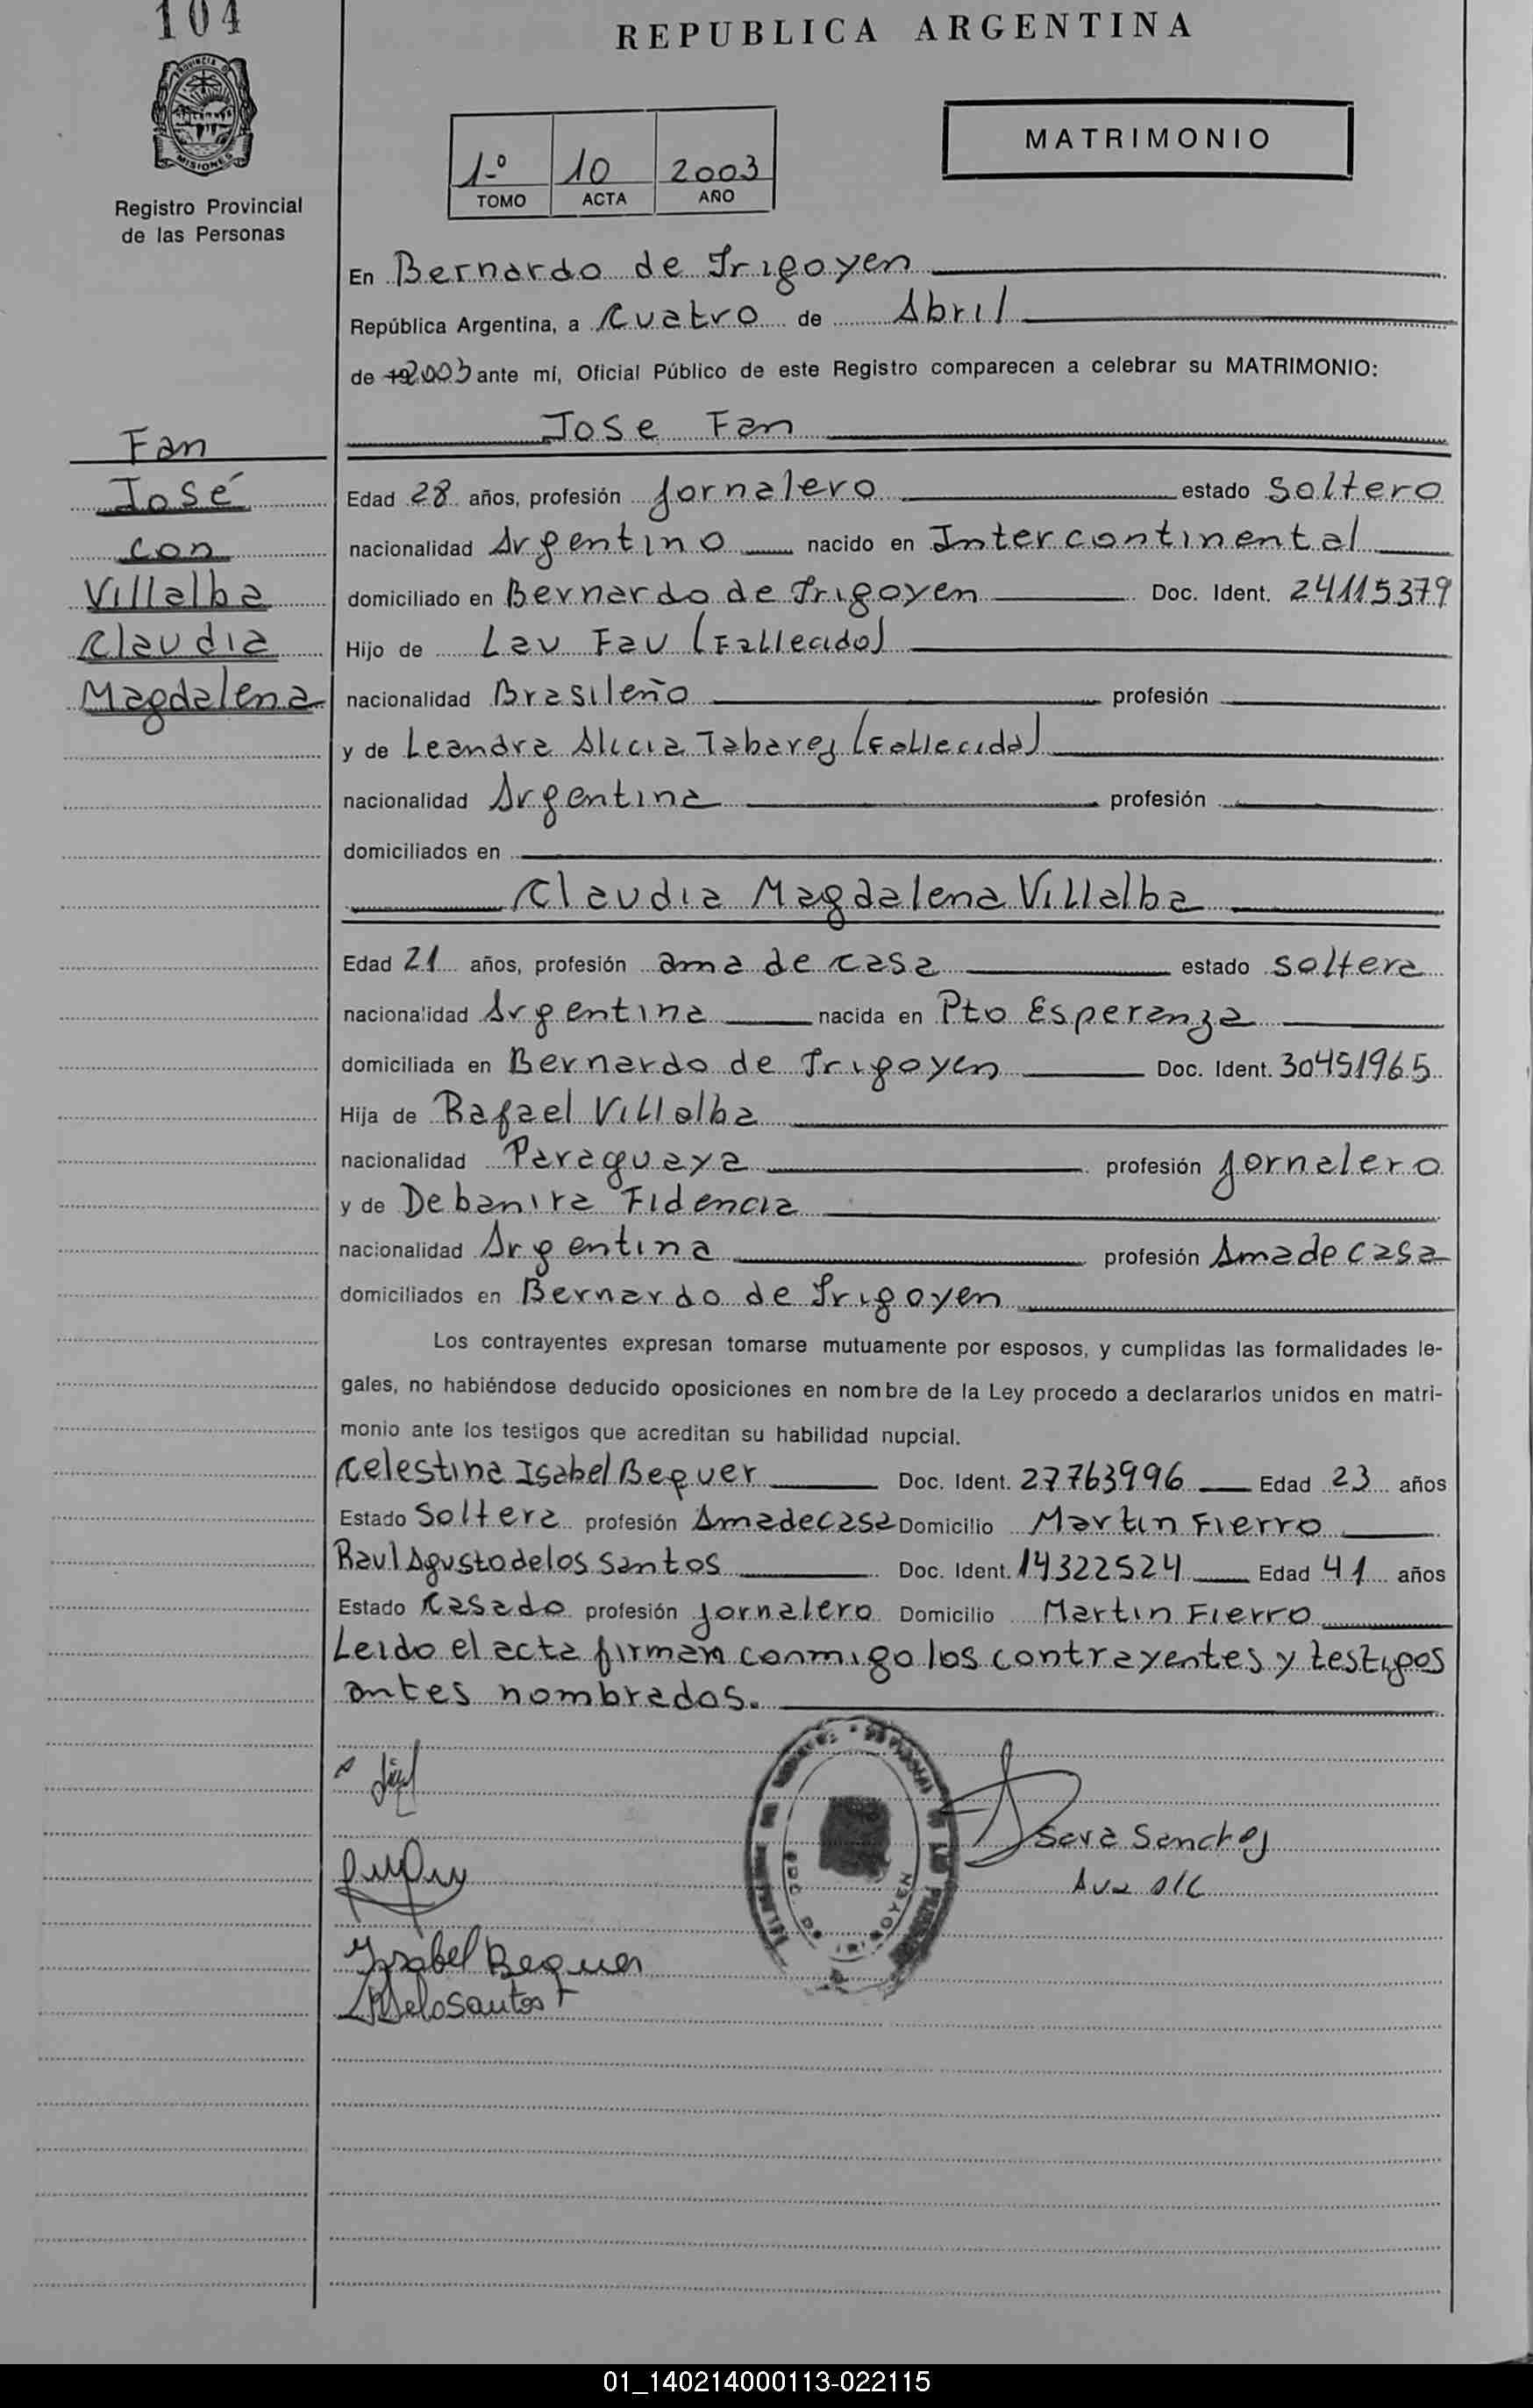 104
REPUBLICA ARGENTINA
PROVINCIA D
MISIONES
Registro Provincial
de las Personas
MATRIMONIO
1º 10 2003
TOMO ACTA AÑO
En Bernardo de Irigoyen
República Argentina, a Cuatro de Abril
de 192003 ante mí, Oficial Público de este Registro comparecen a celebrar su MATRIMONIO:
Jose Fan
Fan
José
con
Villalba
Claudia
Magdalena
Edad 28 años, profesión Jornalero estado Soltero
nacionalidad Argentino nacido en Intercontinental
domiciliado en Bernardo de Irigoyen Doc. Ident. 24115379
Hijo de Lau Fau (Fallecido)
nacionalidad Brasileño profesión
y de Leandra Alicia Tabarez (Fallecida)
nacionalidad Argentina profesión
domiciliados en
Claudia Magdalena Villalba
Edad 21 años, profesión ama de casa estado soltera
nacionalidad Argentina nacida en Pto Esperanza
domiciliada en Bernardo de Irigoyen Doc. Ident. 30451965
Hija de Rafael Villalba
nacionalidad Paraguaya profesión Jornalero
y de Debanira Fidencia
nacionalidad Argentina profesión Ama de casa
domiciliados en Bernardo de Irigoyen
Los contrayentes expresan tomarse mutuamente por esposos, y cumplidas las formalidades le-
gales, no habiéndose deducido oposiciones en nombre de la Ley procedo a declararlos unidos en matri-
monio ante los testigos que acreditan su habilidad nupcial.
Celestina Isabel Bequer Doc. Ident. 27763996 Edad 23 años
Estado Soltera profesión Ama de casa Domicilio Martin Fierro
Raul Agusto de los Santos Doc. Ident. 14322524 Edad 41 años
Estado Casado profesión Jornalero Domicilio Martin Fierro
Leido el acta firman conmigo los contrayentes y testigos
antes nombrados.
Sara Sanchez
Isabel Bequer
01_140214000113-022115